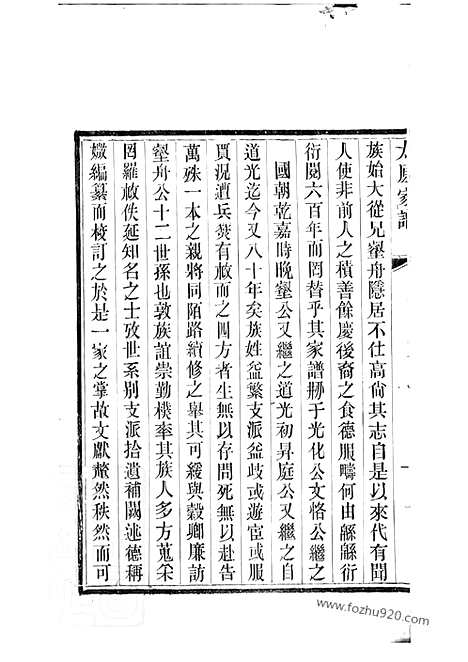 太原家譜
族始大從兄壑舟隱居不仕高尙其志自是以來代有聞
人使非前人之積善餘慶後裔之食德服疇何由緜緜衍
衍閱六百年而罔替乎其家譜刱于光化公文恪公繼之
國朝乾嘉時晚壑公又繼之道光初昇庭公又繼之自
道光迄今又八十年矣族姓益繁支派益歧或遊宦或服
賈況遭兵燹有散而之四方者生無以存問死無以赴告
萬殊一本之親將同陌路續修之舉其可緩與榖卿廉訪
壑舟公十二世孫也敦族誼崇勤樸率其族人多方蒐采
罔羅放佚延知名之士攷世系别支派拾遺補闕述德稱
媺編纂而校訂之於是一家之掌故文獻釐然秩然而可
www.fozhu920.com